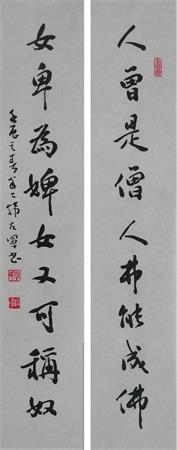 人曾是僧人弗能成佛
女卑為婢女又可稱奴
壬辰之春